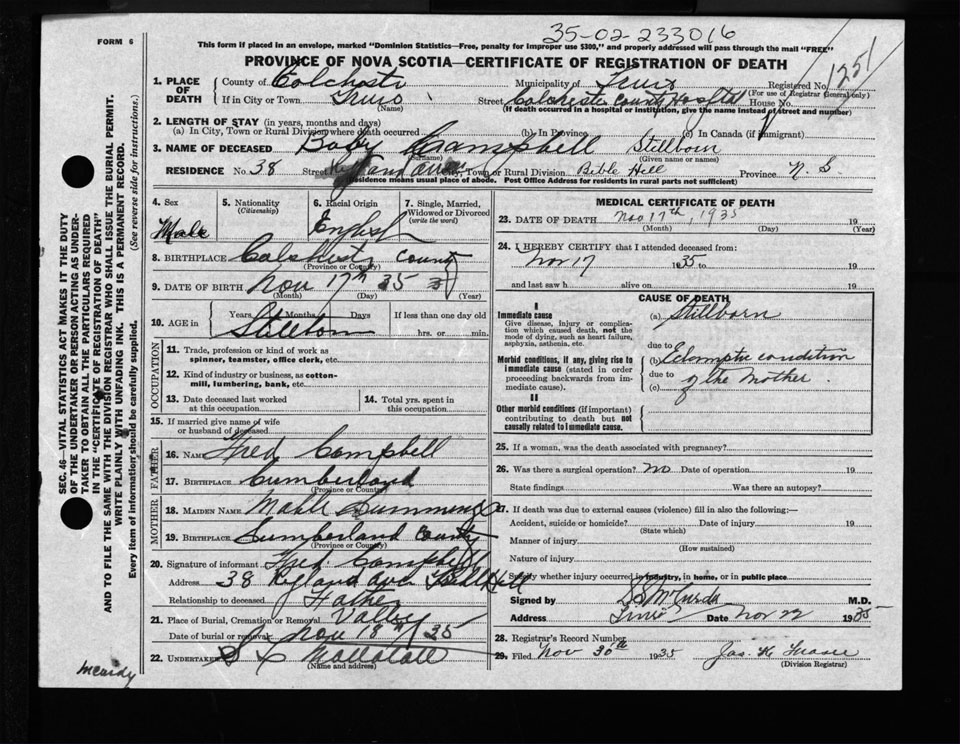 35-02-233016
FORM 6
This form if placed in an envelope, marked "Dominion Statistics—Free, penalty for improper use $300," and properly addressed will pass through the mail "FREE"
PROVINCE OF NOVA SCOTIA—CERTIFICATE OF REGISTRATION OF DEATH
1251
1. PLACE OF DEATH
County of Colchester Municipality of Truro Registered No.
(For use of Registrar General only)
If in City or Town Truro Street Colchester County Hospital House No.
(Name) (If death occurred in a hospital or institution, give the name instead of street and number)
2. LENGTH OF STAY (in years, months and days)
(a) In City, Town or Rural Division where death occurred (b) In Province (c) In Canada (if immigrant)
3. NAME OF DECEASED Baby Campbell Stillborn
(Surname) (Given name or names)
RESIDENCE No. 38 Street City, Town or Rural Division Bible Hill Province N. S.
Residence means usual place of abode. Post Office Address for residents in rural parts not sufficient)
4. Sex
Male
5. Nationality
(Citizenship)
6. Racial Origin
English
7. Single, Married, Widowed or Divorced
(write the word)
8. BIRTHPLACE Colchester County
(Province or Country)
9. DATE OF BIRTH Nov 17th 35
(Month) (Day) (Year)
10. AGE in
Years Months Days
If less than one day old
Stillborn
hrs. or min.
OCCUPATION
11. Trade, profession or kind of work as
spinner, teamster, office clerk, etc.
12. Kind of industry or business, as cotton-
mill, lumbering, bank, etc.
13. Date deceased last worked
at this occupation
14. Total yrs. spent in
this occupation
15. If married give name of wife
or husband of deceased
FATHER
16. NAME Fred Campbell
17. BIRTHPLACE Cumberland
(Province or Country)
MOTHER
18. MAIDEN NAME Mable
19. BIRTHPLACE Cumberland County
(Province or Country)
20. Signature of informant Fred Campbell
Address 38 Ryland Ave Bible Hill
Relationship to deceased Father
21. Place of Burial, Cremation or Removal Valley
Date of burial or removal Nov 18th 35
22. UNDERTAKER
(Name and address)
MEDICAL CERTIFICATE OF DEATH
23. DATE OF DEATH Nov 17th, 1935 19
(Month) (Day) (Year)
24. I HEREBY CERTIFY that I attended deceased from:
Nov 17 1935 to 19
and last saw h alive on 19
CAUSE OF DEATH
I
Immediate cause
Give disease, injury or complica-
tion which caused death, not the
mode of dying, such as heart failure,
asphyxia, asthenia, etc.
(a) Stillborn
due to
Morbid conditions, if any, giving rise to
immediate cause (stated in order
proceeding backwards from im-
mediate cause).
(b) Eclamptic condition
due to
(c) of the Mother.
II
Other morbid conditions (if important)
contributing to death but not
causally related to immediate cause.
25. If a woman, was the death associated with pregnancy?
26. Was there a surgical operation? no Date of operation 19
State findings Was there an autopsy?
27. If death was due to external causes (violence) fill in also the following:—
Accident, suicide or homicide? Date of injury 19
(State which)
Manner of injury
(How sustained)
Nature of injury
Specify whether injury occurred in industry, in home, or in public place
Signed by McCurdy M.D.
Address Truro Date Nov 22 1935
28. Registrar's Record Number
29. Filed Nov 30th 1935 Jas. H.
(Division Registrar)
SEC. 46—VITAL STATISTICS ACT MAKES IT THE DUTY
OF THE UNDERTAKER OR PERSON ACTING AS UNDER-
TAKER TO OBTAIN ALL THE PARTICULARS REQUIRED
IN THE "CERTIFICATE OF REGISTRATION OF DEATH"
AND TO FILE THE SAME WITH THE DIVISION REGISTRAR WHO SHALL ISSUE THE BURIAL PERMIT.
WRITE PLAINLY WITH UNFADING INK. THIS IS A PERMANENT RECORD.
Every item of information should be carefully supplied.
(See reverse side for instructions.)
McCurdy